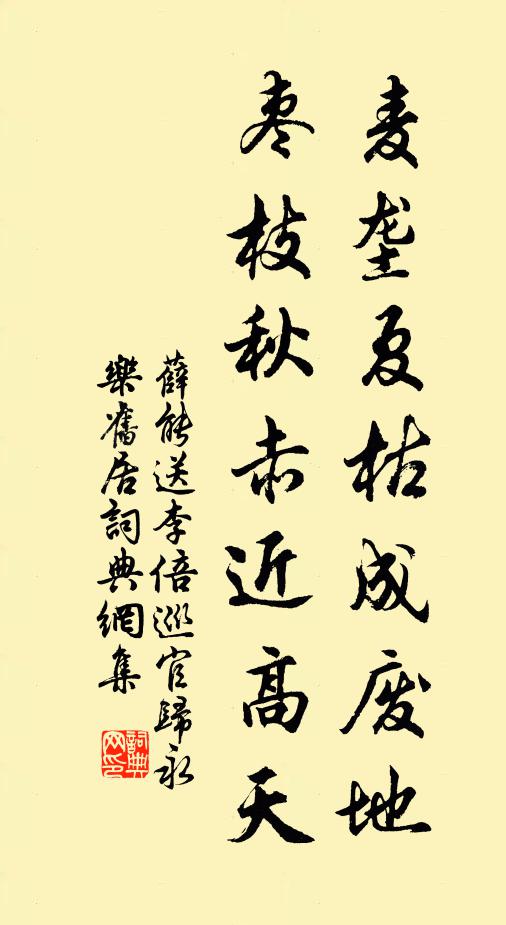 麦垄夏枯成废地
枣枝秋赤近高天
薛能送李倍巡官歸永
樂舊居詞典網集
詞典
网印